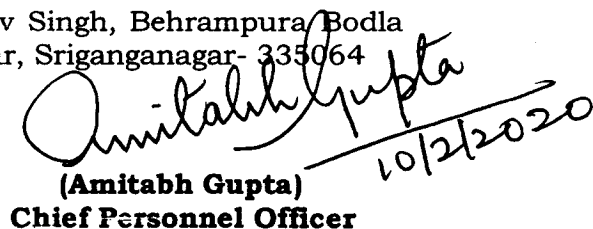 v Singh, Behrampura Bodla
r, Sriganganagar- 335064
Amitabh Gupta
10/2/2020
(Amitabh Gupta)
Chief Personnel Officer